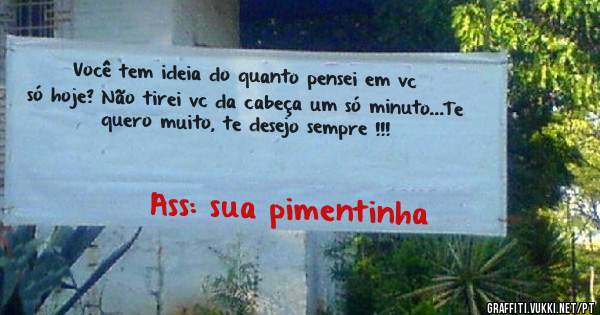 Você tem ideia do quanto pensei em vc
só hoje? Não tirei vc da cabeça um só minuto...Te
quero muito, te desejo sempre !!!
Ass: sua pimentinha
GRAFFITI.VUKKI.NET/PT